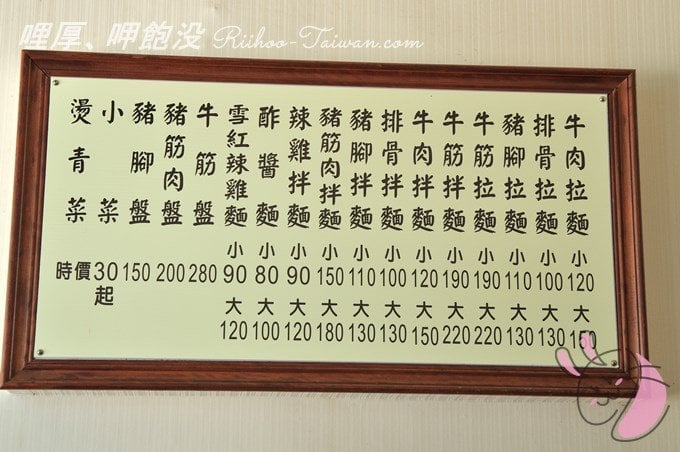 哩厚、呷飽没 Riihoo-Taiwan.com
牛肉拉麵 小120 大150
排骨拉麵 小100 大130
豬腳拉麵 小110 大130
牛筋拉麵 小190 大220
牛筋拌麵 小190 大220
牛肉拌麵 小120 大150
排骨拌麵 小100 大130
豬腳拌麵 小110 大130
豬筋肉拌麵 小150 大180
辣雞拌麵 小90 大120
酢醬麵 小80 大100
雪紅辣雞麵 小90 大120
牛筋盤 280
豬筋肉盤 200
豬腳盤 150
小菜 30起
燙青菜 時價